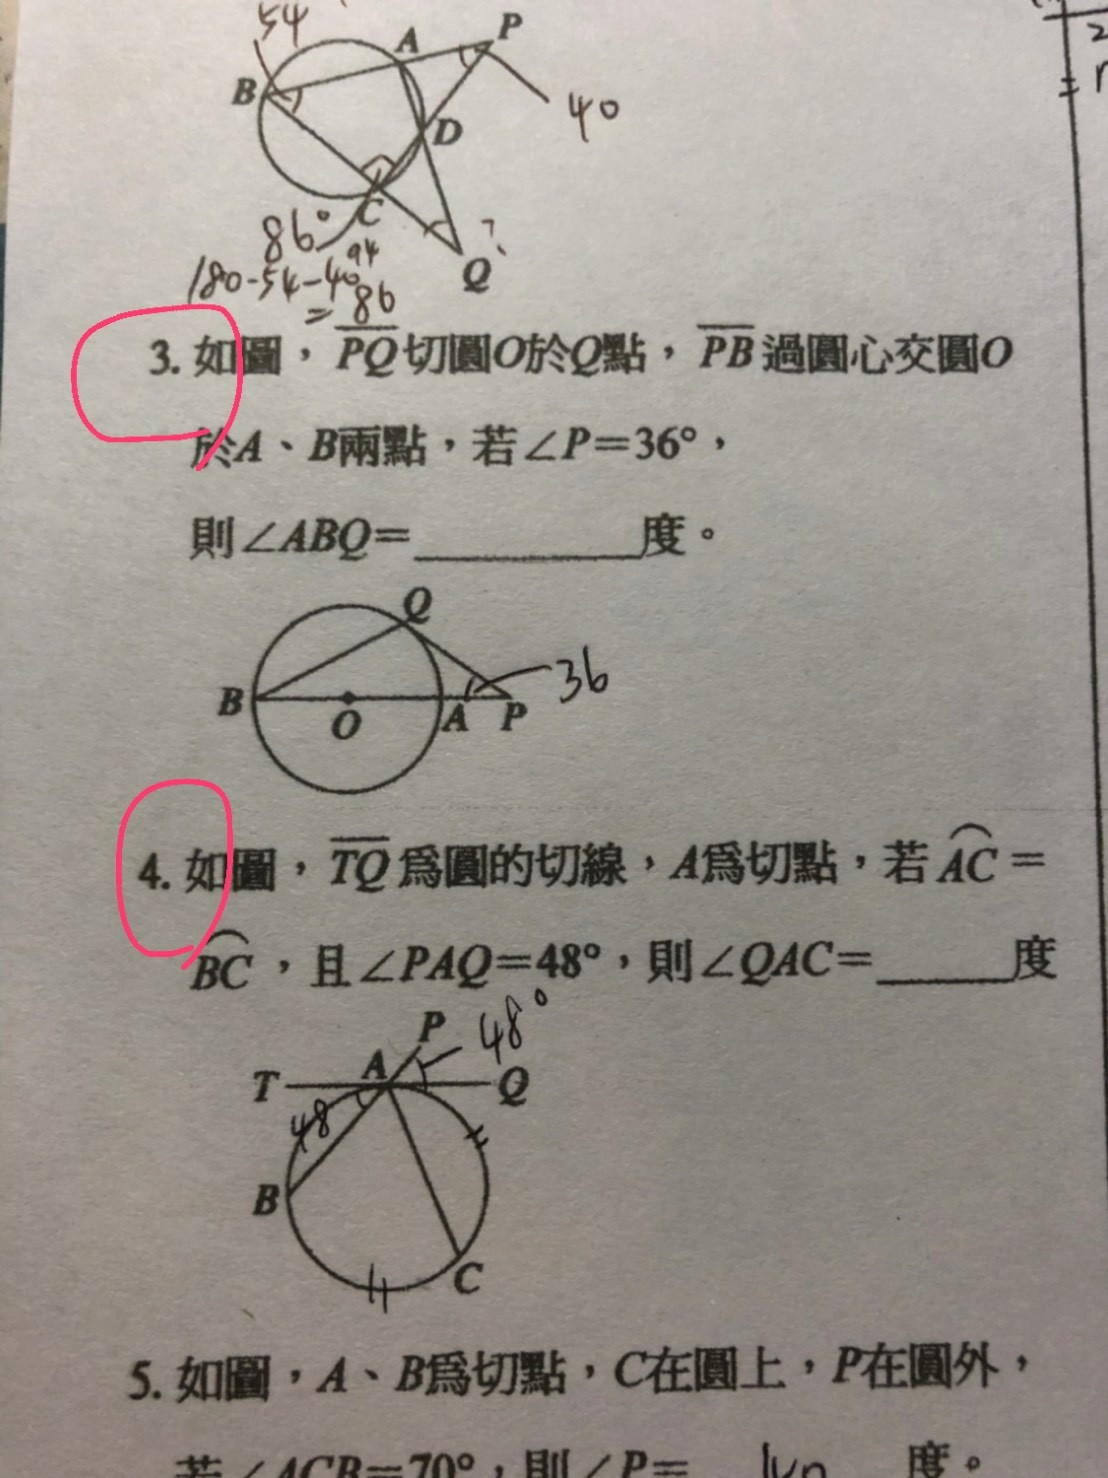 54
A
P
B
40
D
C
86°
94
180-54-40
=86
Q
?
2
=
3. 如圖，PQ切圓O於Q點，PB過圓心交圓O
於A、B兩點，若∠P=36°，
則∠ABQ=________度。
Q
36
B
O
A
P
4. 如圖，TQ為圓的切線，A為切點，若AC=
BC，且∠PAQ=48°，則∠QAC=_____度
P
48°
T
A
Q
48
B
C
5. 如圖，A、B為切點，C在圓上，P在圓外，
若∠ACB=70°，則∠P= 度。